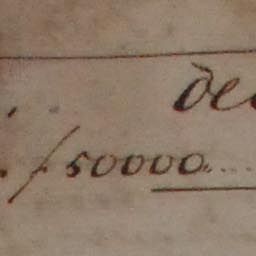 de
ƒ 50000....